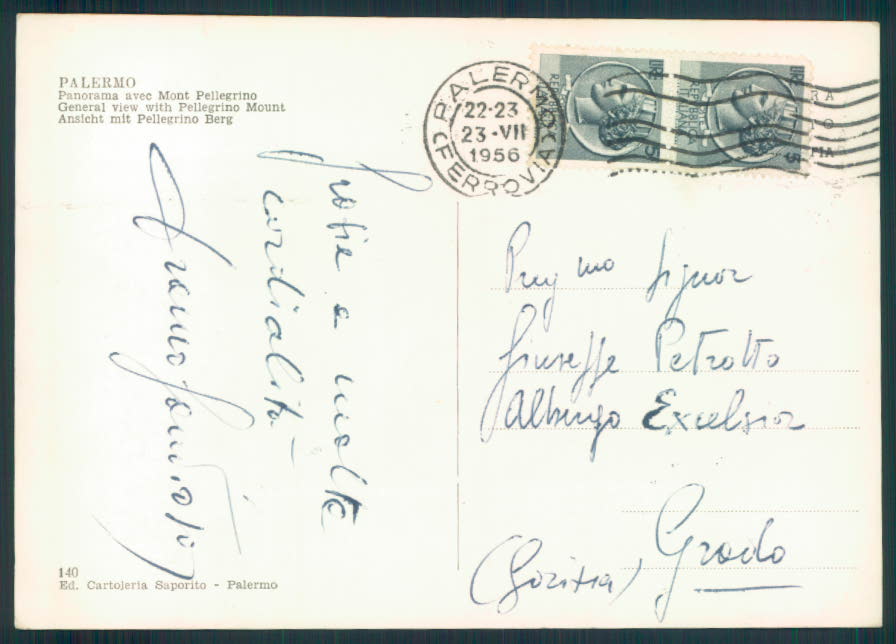 PALERMO
Panorama avec Mont Pellegrino
General view with Pellegrino Mount
Ansicht mit Pellegrino Berg
PALERMO
22-23
23-VII
1956
FERROVIA
LIRE
REPUBBLICA
ITALIANA
5
LIRE
REPUBBLICA
ITALIANA
5
RA
O
FIA
e molte
cordialità
Signor
Giuseppe Petrotto
Albergo Excelsior
Grado
(Gorizia)
140
Ed. Cartoleria Saporito - Palermo